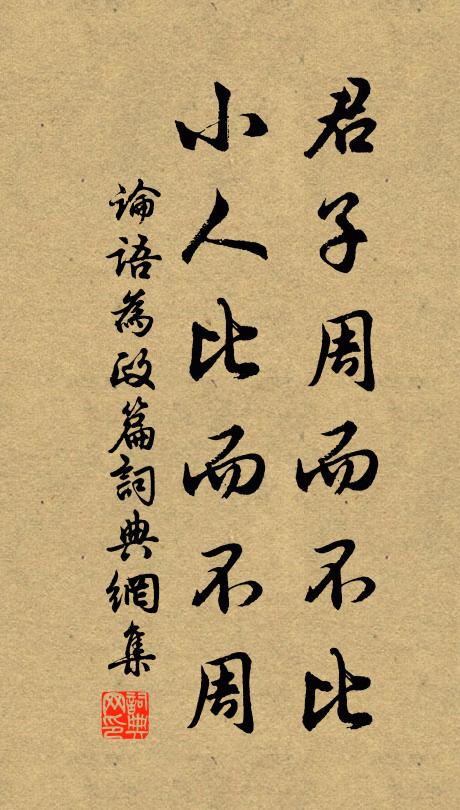 君子周而不比
小人比而不周
論語為政篇詞典網集
詞典
网印